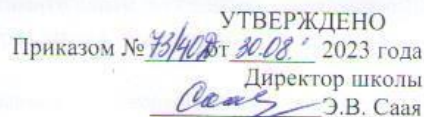 УТВЕРЖДЕНО
Приказом № 73/40 от 30.08. 2023 года
Директор школы
Э.В. Саая